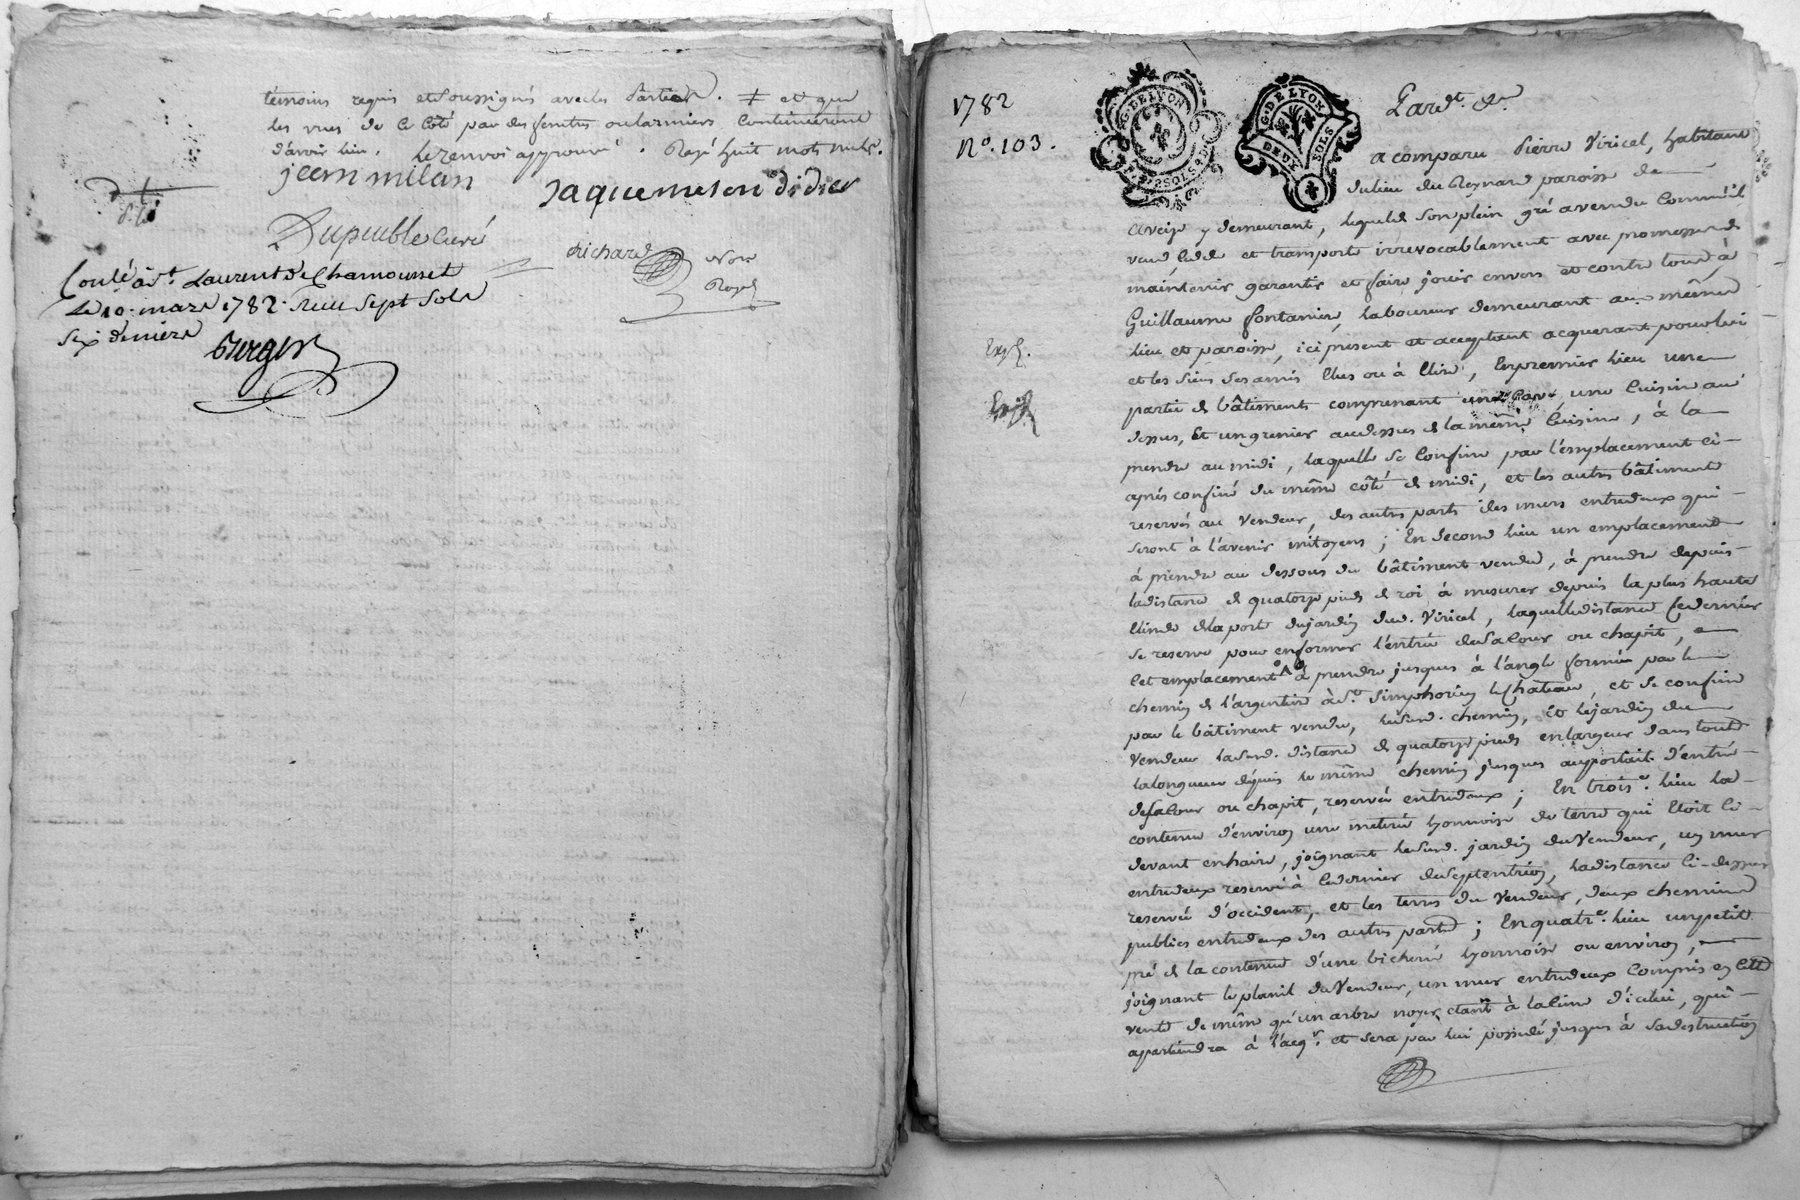 témoins requis et soussignés avec les parties. ≠ et que
les vues de ce côté par des fentes ou larmiers continueront
d'avoir lieu. le renvoi approuvé. Rayé huit mots nuls.
jean milan
Jaqueme
didier
Dupuible curé
Richard Nore
Royal
Coulé à St. Laurent de Chamousset
le 10. mars 1782. reçu sept sols
six deniers
1782
N°. 103.
G. DE LYON
2 SOLS
G. DE LYON
DEUX SOLS
Pardt. &a
a comparu Pierre Viricel, habitant
du lieu du Reynard paroisse de
Aveize y demeurant, lequel de son plein gré a vendu comme il
vend cede et transporte irrevocablement avec promesse de
maintenir garantir et faire jouir envers et contre tous, à
Guillaume fontanier, laboureur demeurant au même
lieu et paroisse, ici présent et acceptant acquerant pour lui
et les siens ses amis élus ou à élire, En premier lieu une
partie de bâtiments comprenant une cave, une cuisine au
dessus, et un grenier au dessus de la même cuisine, à la
prendre au midi, laquelle se confine par l'emplacement ci-
après confiné du même côté de midi, et les autres bâtiments
reservés au vendeur, des autres parts des murs entredeux qui
seront à l'avenir mitoyens; En second lieu un emplacement
à prendre au dessous du bâtiment vendu, à prendre depuis
la distance de quatorze pieds de roi à mesurer depuis la plus haute
cime de la porte du jardin dud. Viricel, laquelle distance ce dernier
se reserve pour en former l'entrée de sa cour ou chapit,
cet emplacement à prendre jusques à l'angle formée par le
chemin de l'argentière à St. Simphorien le Chateau, et se confine
par le bâtiment vendu, led. chemin, et le jardin du
vendeur lad. distance de quatorze pieds en largeur dans toute
la longueur depuis le même chemin jusques au portail d'entrée
de sa cour ou chapit, reservée entredeux; En trois.e lieu la
contenue d'environ une metrée lyonnoise de terre qui étoit ci-
devant en haire, joignant led. jardin du vendeur, un mur
entredeux reservé à ce dernier du septentrion, la distance ci-dessus
reservée d'occident, et les terres du vendeur, deux chemins
publics entredeux des autres parts; En quatr.e lieu un petit
pré de la contenue d'une bicherée lyonnoise ou environ,
joignant le planil du vendeur, un mur entredeux compris en cette
vente de même qu'un arbre noyer étant à la cime d'icelui, qui
appartiendra à l'acq.r et sera par lui possédé jusques à sa destruction